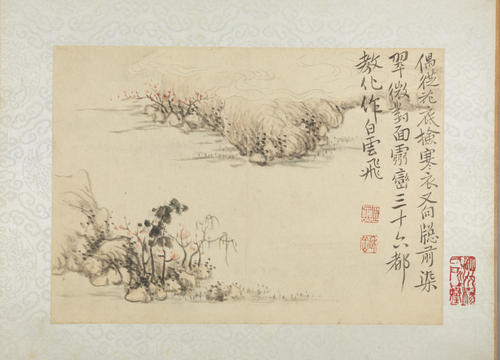 偶從花底檢寒衣又向牕前染
翠微對面霜巒三十六都
教化作白雲飛